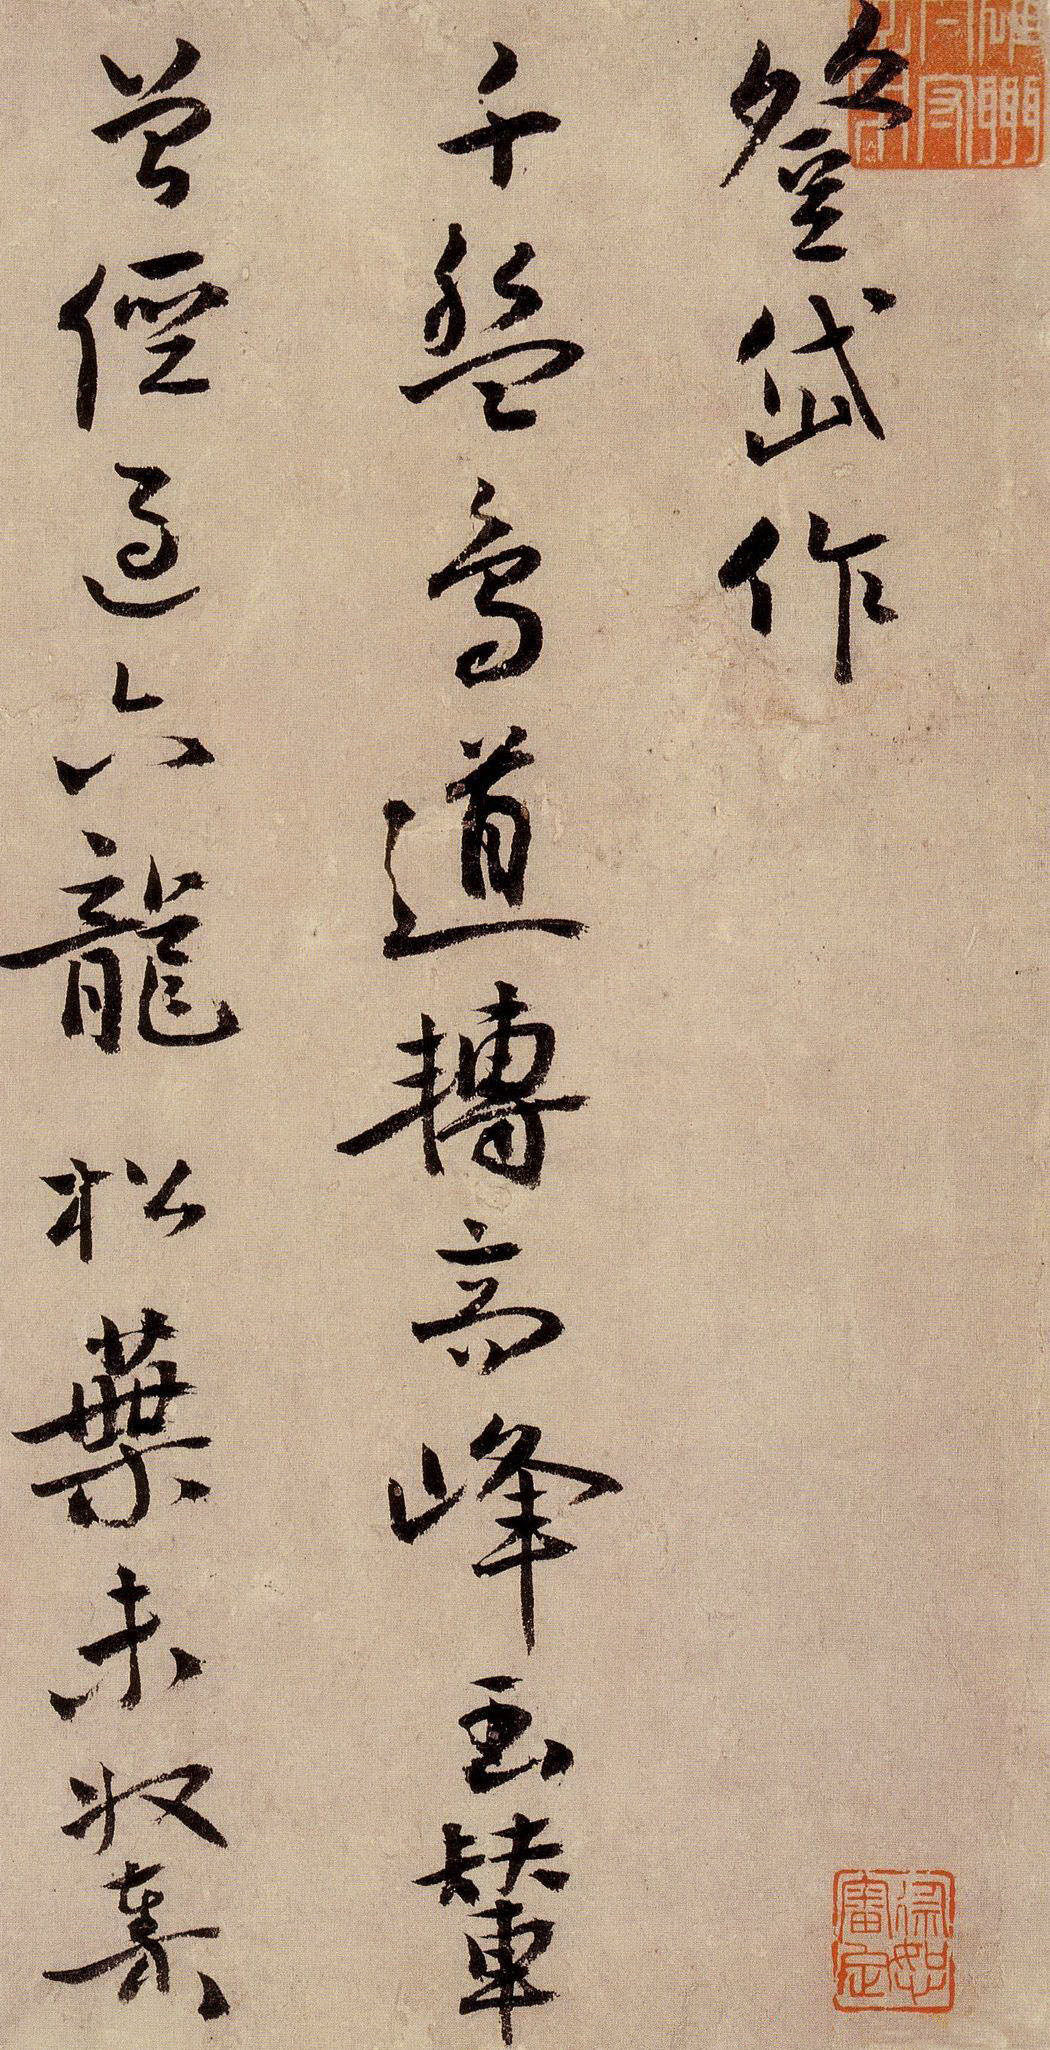 登岱作
千盤鳥道轉高峰玉輦
曾經過六龍松葉未收秦
徐恕審定